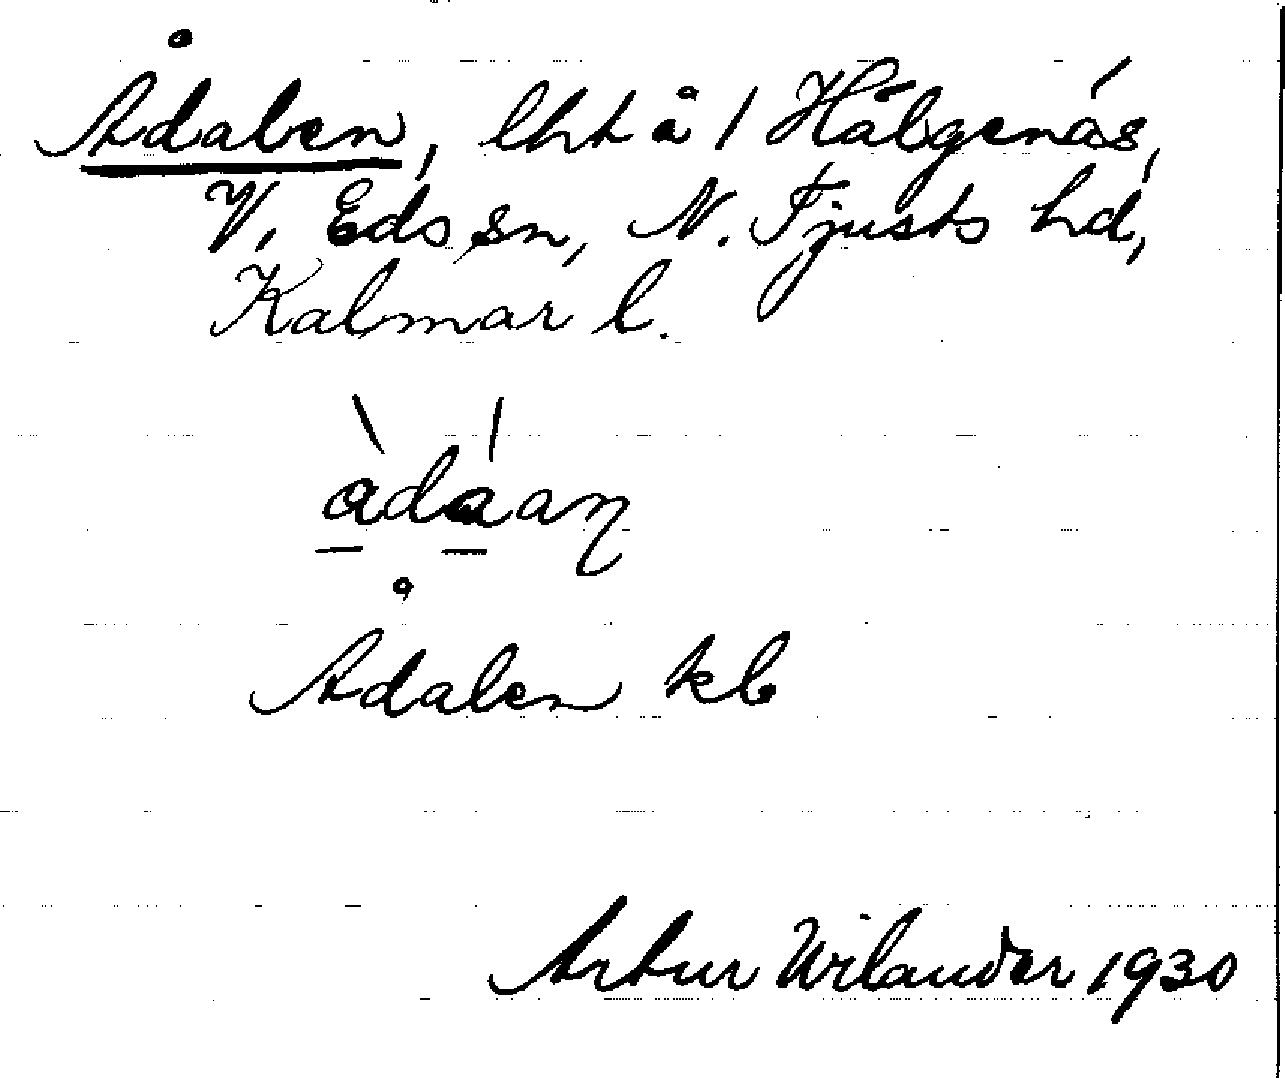 Ådalen, lht å 1 Hälgenäs,
V. Eds sn, N. Tjusts hd,
Kalmar l.
Ådalen kb
Artur Wilander 1930